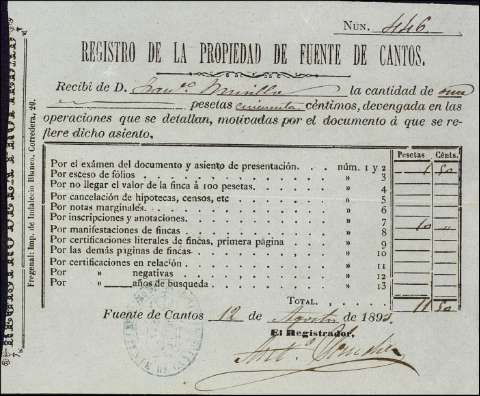 NÚN. 446
REGISTRO DE LA PROPIEDAD DE FUENTE DE CANTOS.
Recibi de D. la cantidad de once
pesetas cincuenta céntimos, devengada en las
operaciones que se detallan, motivadas por el documento á que se re-
fiere dicho asiento.
Pesetas Cénts.
Por el exámen del documento y asiento de presentación. núm. 1 y 2 1 50
Por exceso de fólios 3
Por no llegar el valor de la finca á 100 pesetas. » 4
Por cancelación de hipotecas, censos, etc » 5
Por notas marginales. » 6
Por inscripciones y anotaciones. » 7 10 »
Por manifestaciones de fincas » 8
Por certificaciones literales de fincas, primera página » 9
Por las demás páginas de fincas » 10
Por certificaciones en relación » 11
Por » negativas » 12
Por » años de busqueda » 13
TOTAL. 11 50
Fuente de Cantos 12 de Agosto de 189
El Registrador,
Fregenal: Imp. de Indalecio Blanco, Corredera, 20.